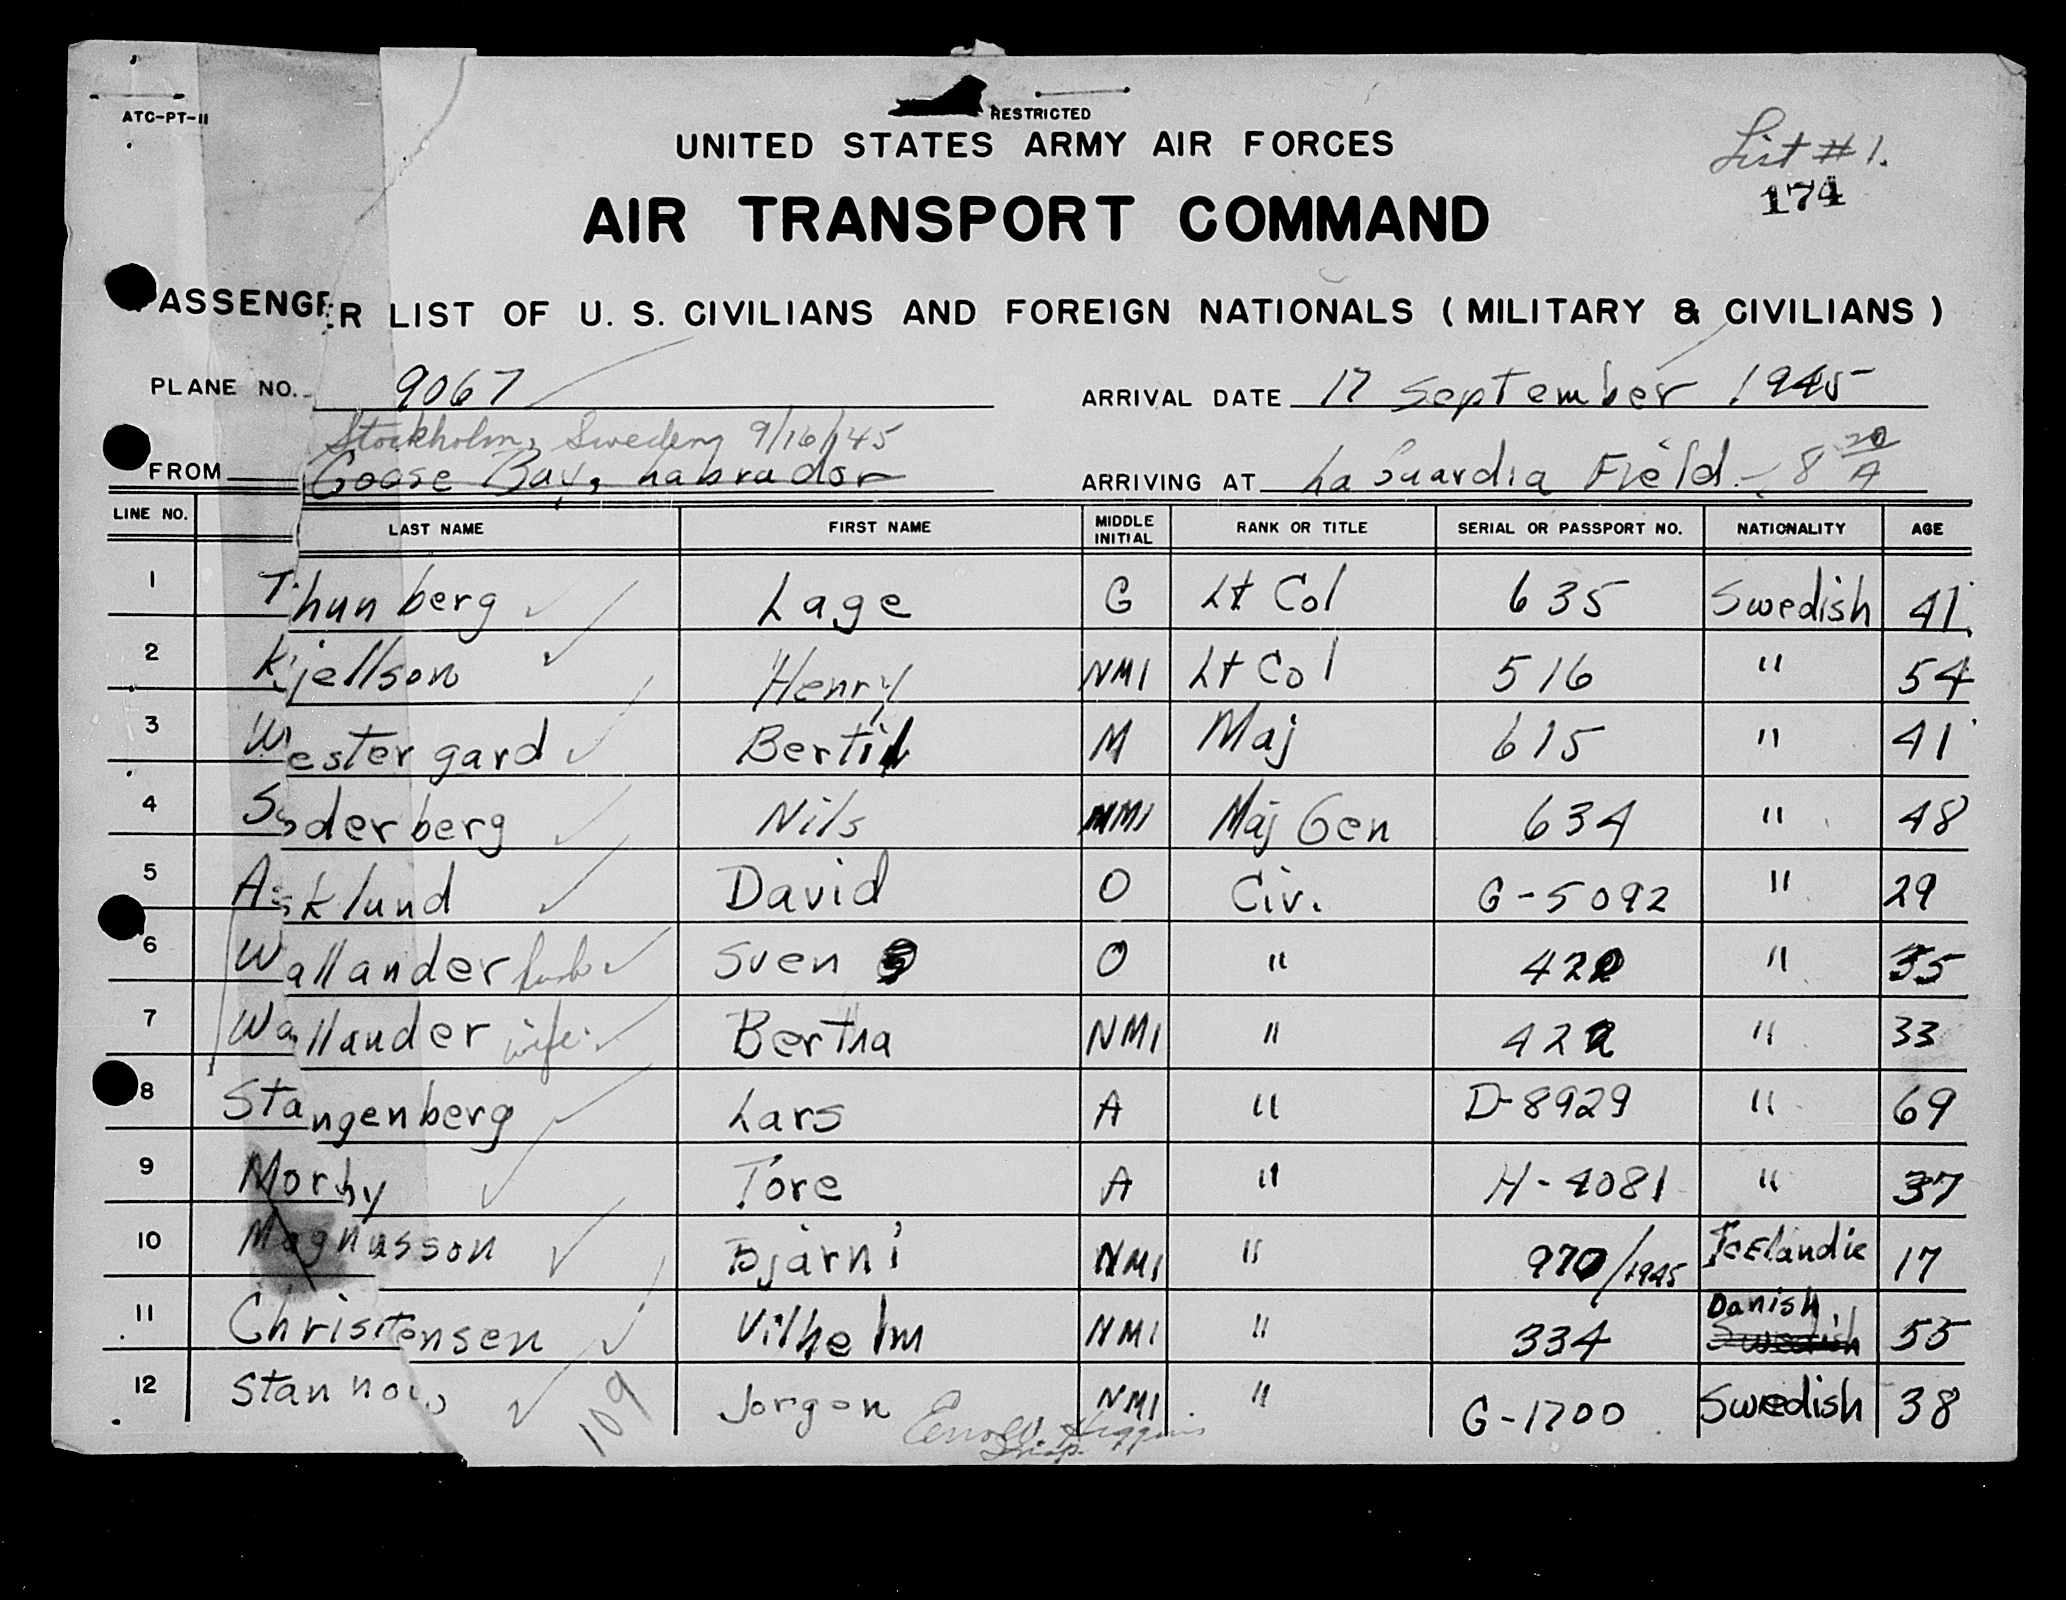 ATC-PT-11
RESTRICTED
UNITED STATES ARMY AIR FORCES
List # 1.
AIR TRANSPORT COMMAND
174
PASSENGER LIST OF U. S. CIVILIANS AND FOREIGN NATIONALS ( MILITARY & CIVILIANS )
PLANE NO. 9067 ARRIVAL DATE 17 September 1945
Stockholm, Sweden 9/16/45
FROM Goose Bay, Labrador ARRIVING AT La Guardia Field - 8 20/A
LINE NO. LAST NAME FIRST NAME MIDDLE INITIAL RANK OR TITLE SERIAL OR PASSPORT NO. NATIONALITY AGE
1 Thunberg Lage G Lt Col 635 Swedish 41
2 Kjellson Henry NMI Lt Col 516 " 54
3 Westergard Bertil M Maj 615 " 41
4 Soderberg Nils NMI Maj Gen 634 " 48
5 Asklund David O Civ. G-5092 " 29
6 Wallander husb Sven O " 422 " 35
7 Wallander wife Bertha NMI " 422 " 33
8 Stangenberg Lars A " D-8929 " 69
9 Morby Tore A " H-4081 " 37
10 Magnusson Bjarni NMI " 970/1945 Icelandic 17
11 Christensen Vilhelm NMI " 334 Danish Swedish 55
12 Stannow Jorgen NMI " G-1700 Swedish 38
109
Higgins
Insp.